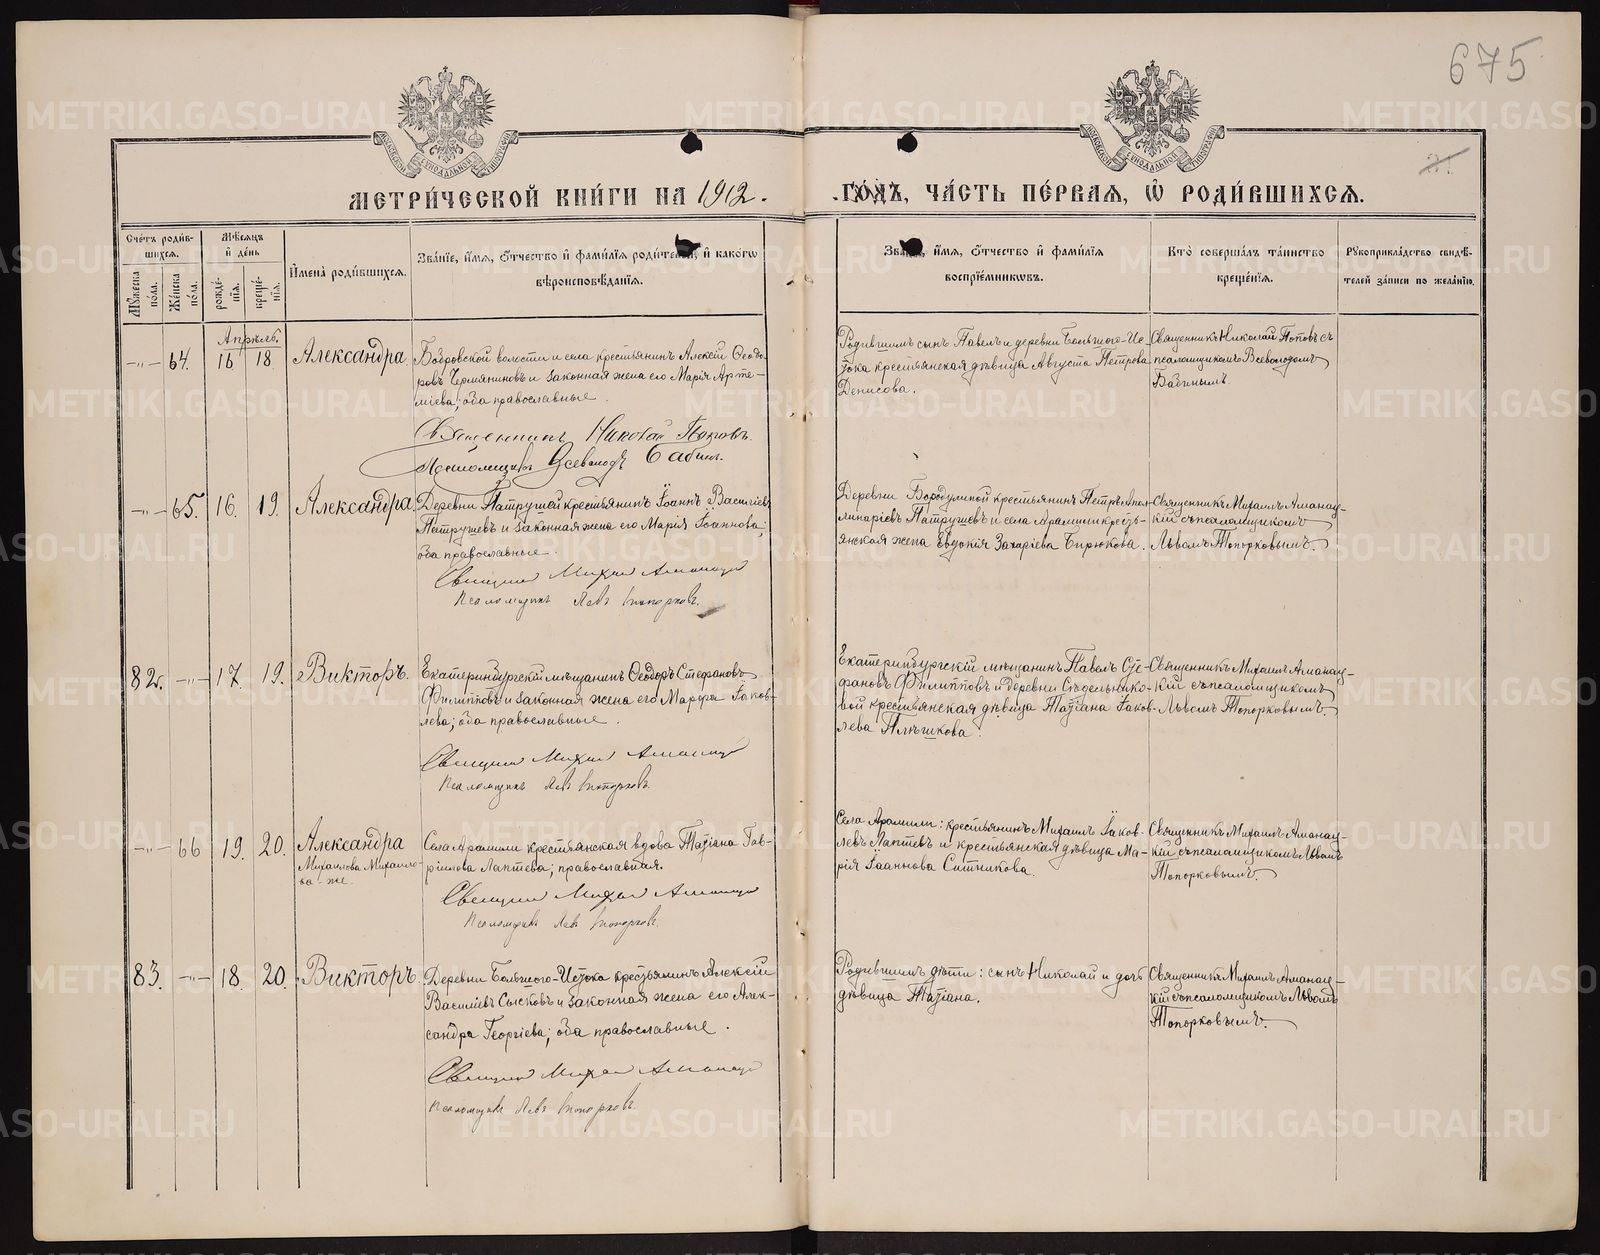 675
МЕТРИ́ЧЕСКОЙ КНИ́ГИ НА 1912.
ГО́ДЪ, ЧА́СТЬ ПЕ́РВАЯ, Ѡ҆ РОДИ́ВШИХСЯ.
Сче́тъ роди́в-
шихся.
Му́жеска по́ла.
Же́нска по́ла.
Мѣ́сяцъ
и҆ де́нь
рожде́-
нія.
креще́-
нія.
И҆мена̀ роди́вшихся.
Зва́ніе, и҆́мя, ѻ҆́тчество и҆ фами́лія роди́телей, и҆ како́гѡ
вѣроисповѣ́данія.
Зва́ніе, и҆́мя, ѻ҆́тчество и҆ фами́лія
воспріе́мниковъ.
Кто̀ соверша́лъ та́инство
креще́нія.
Рукоприкла́дство свидѣ́-
телей за́писи по жела́нію.
Апрѣль.
—„— 64. 16 18 Александра.
Бобровской волости и села крестьянинъ Алексій Ѳеодо-
ровъ Чермяниновъ и законная жена его Марія Арте-
міева; оба православные.
Священникъ Николай Поповъ.
Псаломщикъ Всеволодъ Бабинъ.
Родившимъ сынъ Павелъ и деревни Большого-Ис-
тока крестьянская дѣвица Августа Петрова
Денисова.
Священникъ Николай Поповъ съ
псаломщикомъ Всеволодомъ
Бабинымъ.
—„— 65. 16. 19. Александра.
Деревни Патрушей крестьянинъ Іоаннъ Васильевъ
Патрушевъ и законная жена его Марія Іоаннова;
оба православные.
Священникъ Михаил Аманацкій
Псаломщикъ Левъ Топорковъ.
Деревни Бородулиной крестьянинъ Петръ Апол-
линаріевъ Патрушевъ и села Арамили кресть-
янская жена Евдокія Захаріева Бирюкова.
Священникъ Михаилъ Аманац-
кій съ псаломщикомъ
Львомъ Топорковымъ.
82. —„— 17. 19. Викторъ.
Екатеринбургскій мѣщанинъ Ѳеодоръ Стефановъ
Филипповъ и законная жена его Марѳа Іаков-
лева; оба православные.
Священникъ Михаил Аманацкій
Псаломщикъ Левъ Топорковъ.
Екатеринбургскій мѣщанинъ Павелъ Сте-
фановъ Филипповъ и деревни Сѣдельнико-
вой крестьянская дѣвица Татіана Іаков-
лева Плѣшкова.
Священникъ Михаилъ Аманац-
кій съ псаломщикомъ
Львомъ Топорковымъ.
—„— 66 19. 20. Александра
Михаилова Михайло-
ва-же.
Села Арамили крестьянская вдова Татіана Гав-
ріилова Лаптева, православная.
Священникъ Михаил Аманацкій
Псаломщикъ Левъ Топорковъ.
Села Арамили: крестьянинъ Михаилъ Іаков-
левъ Лаптевъ и крестьянская дѣвица Ма-
рія Іоаннова Ситникова.
Священникъ Михаилъ Аманац-
кій съ псаломщикомъ Львомъ
Топорковымъ.
83. —„— 18. 20. Викторъ.
Деревни Большого-Истока крестьянинъ Алексій
Васильевъ Сысковъ и законная жена его Алек-
сандра Георгіева; оба православные.
Священникъ Михаил Аманацкій
Псаломщикъ Левъ Топорковъ.
Родившимъ дѣти: сынъ Николай и дочь
дѣвица Татіана.
Священникъ Михаилъ Аманац-
кій съ псаломщикомъ Львомъ
Топорковымъ.